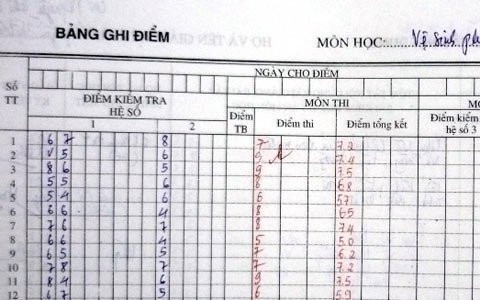 BẢNG GHI ĐIỂM MÔN HỌC: Vệ sinh
NGÀY CHO ĐIỂM
Số TT
ĐIỂM KIỂM TRA HỆ SỐ
MÔN THI
1 2
Điểm TB Điểm thi Điểm tổng kết Điểm kiểm hệ số 3
1 6 7 8 7 7.2
2 5 6 9 7.4
3 8 6 5 9 7.5
4 5 5 6 8 6.8
5 5 4 6 6 5.7
6 6 6 4 8 6.5
7 7 6 7 8 7.4
8 6 6 4 5 5.0
9 6 5 5 7 6.2
10 7 8 7 7 7.2
11 8 4 6 9 7.5
12 6 7 5 6 5.9